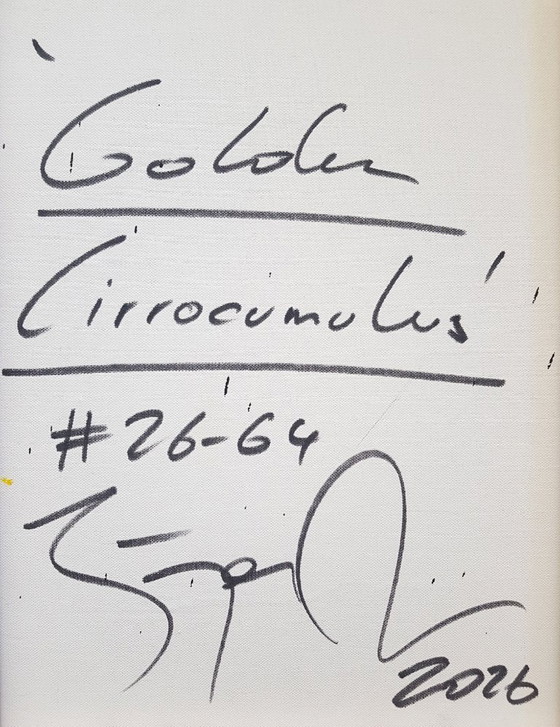 'Golden
Cirrocumulus'
#26-64
2026